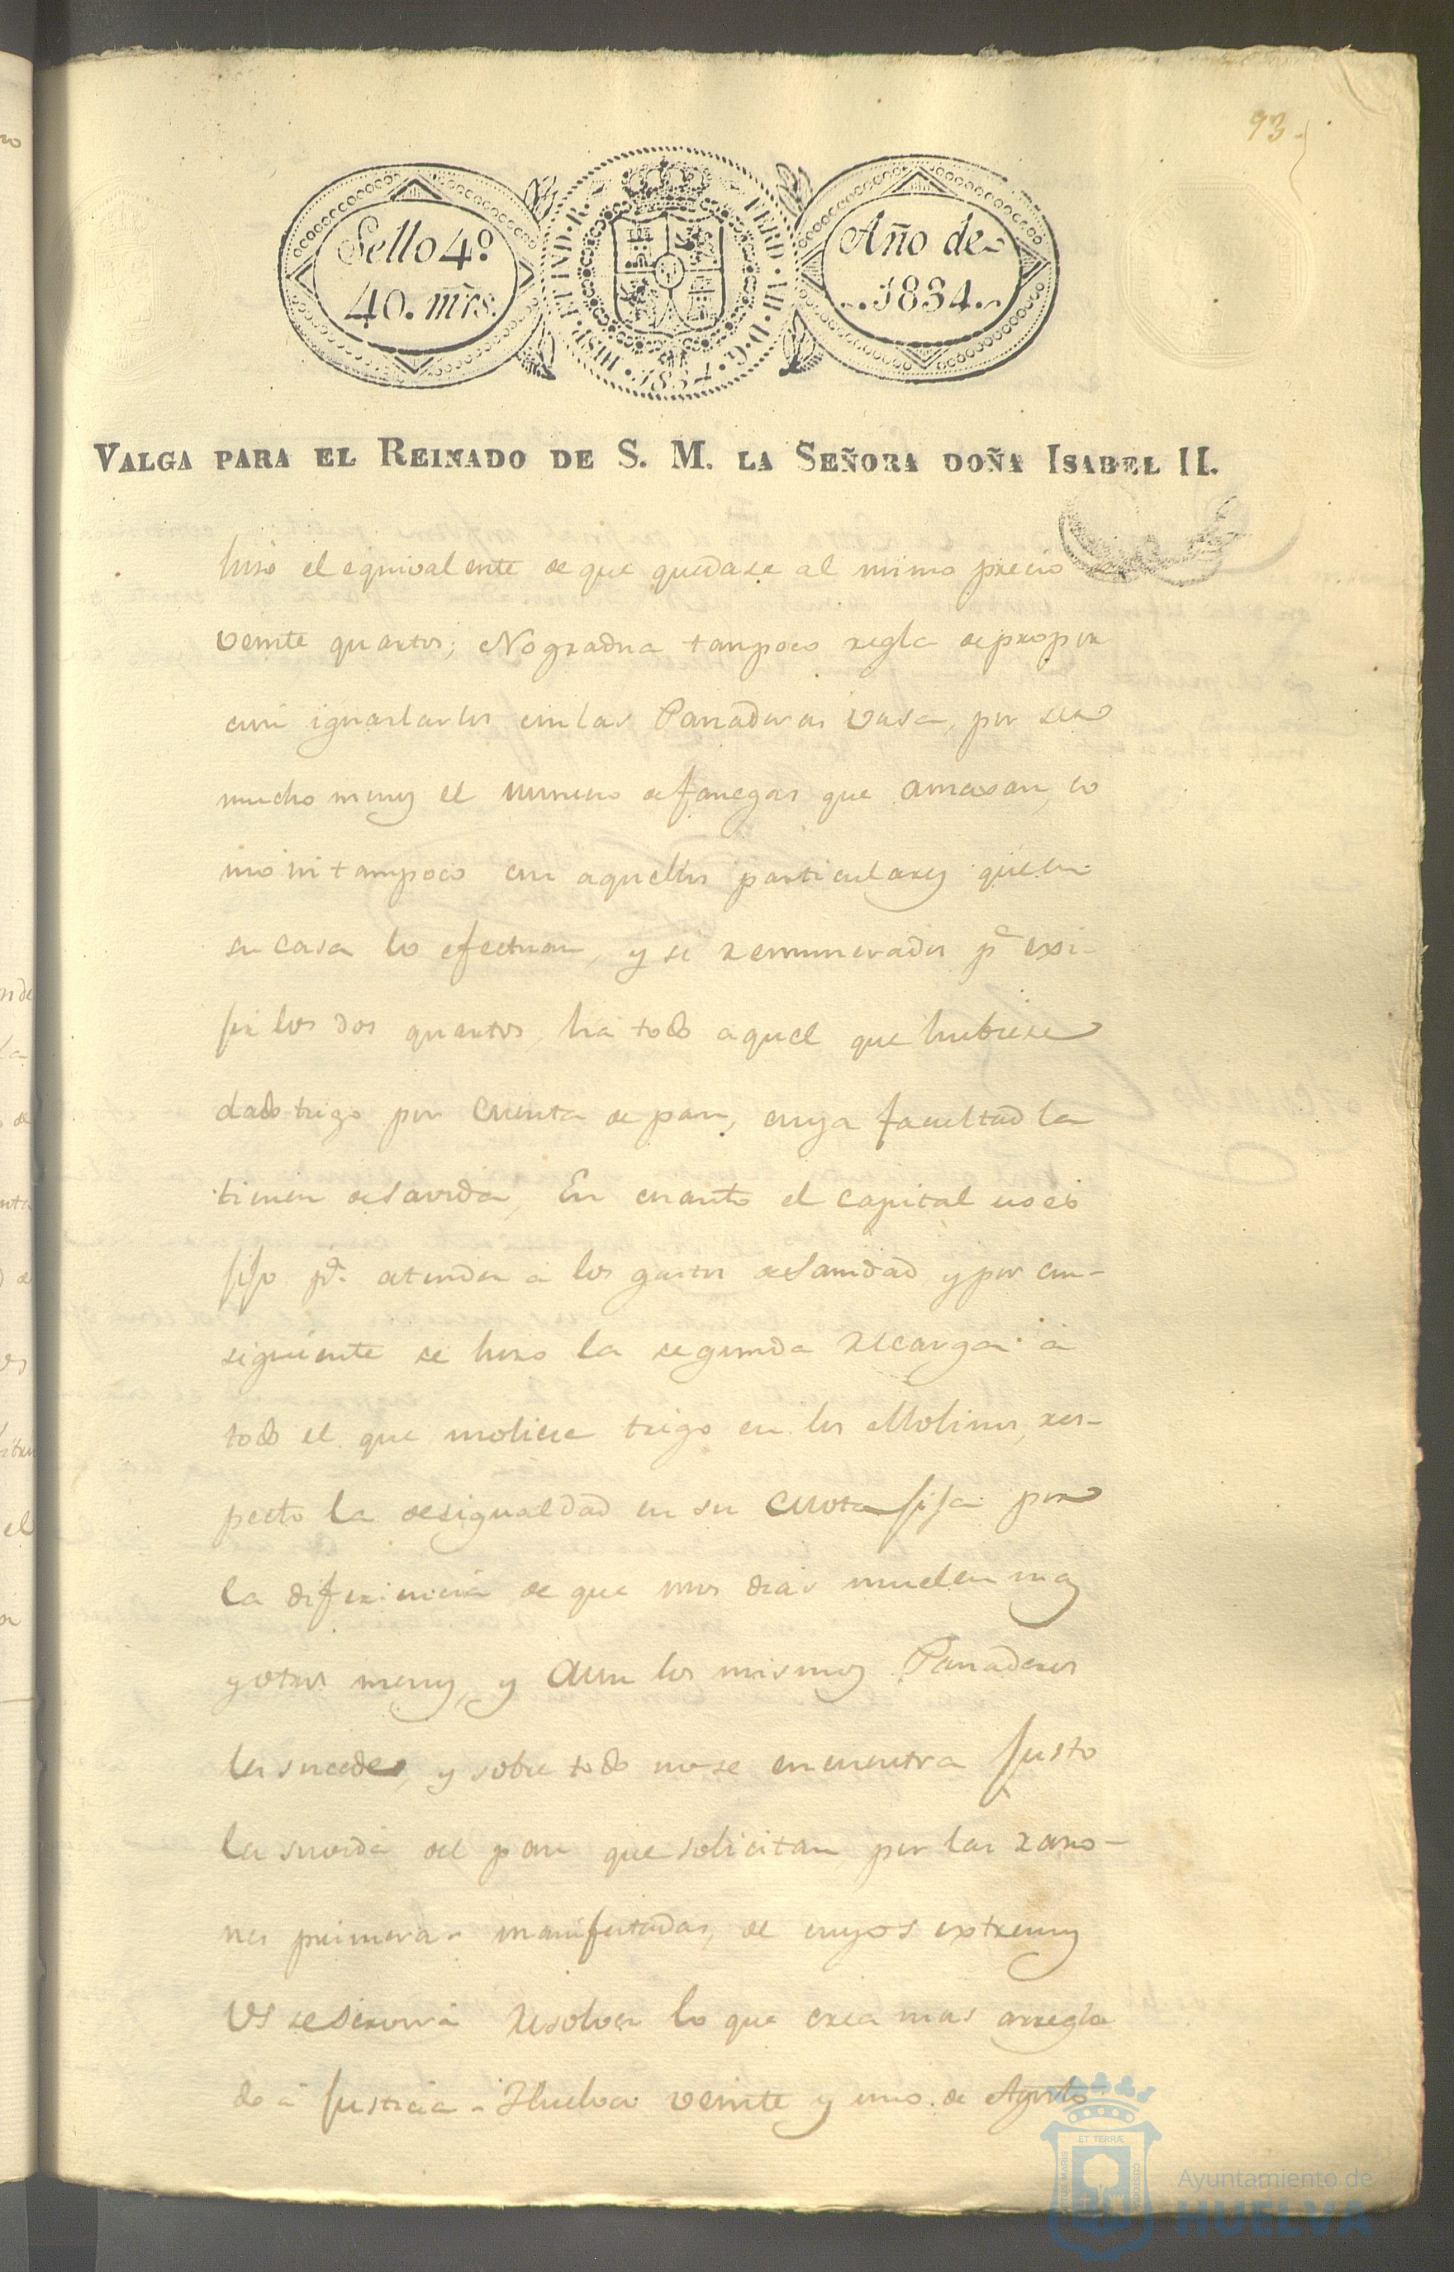 93.
Sello 4º
40. mrs.
HISP. ET IND. R. FERD. VII. D. G. 1834
Año de
1834.
VALGA PARA EL REINADO DE S. M. LA SEÑORA DOÑA ISABEL II.
hiso el equivalente de que quedase al mismo precio de
veinte quartos; No gradua tampoco regla de propor
cion igualarlos con las Panaderas vasa, por ser
mucho menos el numero de fanegas que amasan, co
mo ni tampoco con aquellos particulares que en
su casa lo efectuan, y si remunerados pª exi-
jir los dos quartos, ha todo aquel que hubiese
dado trigo por cuenta de pan, cuya facultad la
tienen desavida, En cuanto el capital no es
fijo pª atender a los gastos de Sanidad y por con-
siguiente se hiso la segunda recarga a
todo el que moliese trigo en los Molinos, res-
pecto la desigualdad en su cuota fija por
la diferiencia de que unos dias muelen mas
y otros menos, y aun los mismos Panaderos
les sucede, y sobre todo no se encuentra justo
la suvida del pan que solicitan por las raso-
nes primeras manifestadas, de cuyos extremos
VS se servira resolver lo que crea mas arregla
do a justicia - Huelva veinte y uno de Agosto
ET TERRÆ
Ayuntamiento de
HUELVA